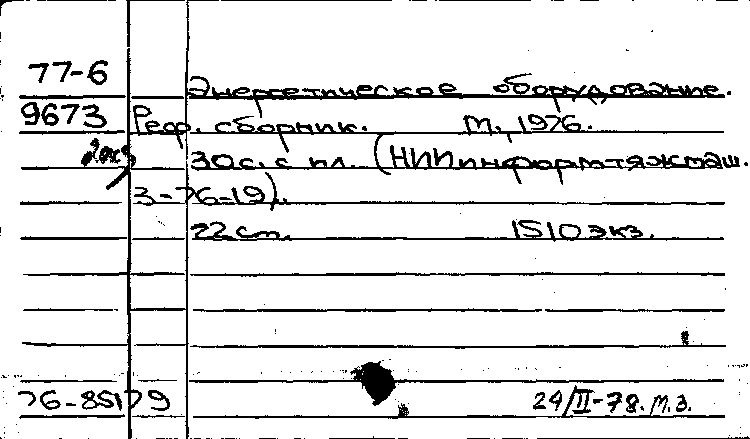 77-6
Энергетическое оборудование.
9673 Реф. сборник. М., 1976.
30 с. с ил. (НИИинформтяжмаш.
3-76-19).
22 см. 1510 экз.
76-85179 24/II-78. М.З.